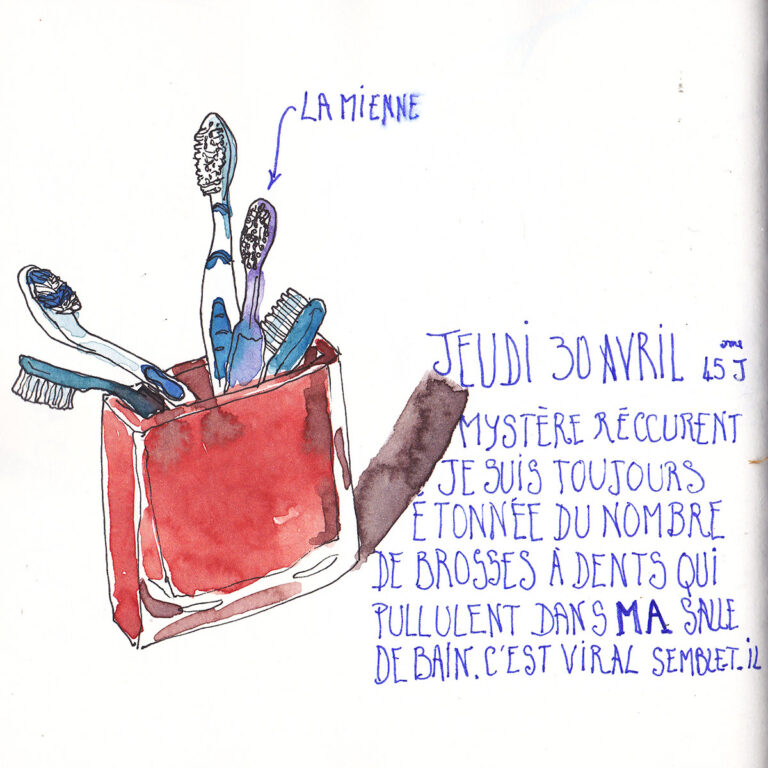 LA MIENNE
JEUDI 30 AVRIL 45 ème J
MYSTÈRE RÉCCURENT
JE SUIS TOUJOURS
ÉTONNÉE DU NOMBRE
DE BROSSES À DENTS QUI
PULLULENT DANS MA SALLE
DE BAIN. C'EST VIRAL SEMBLET.IL